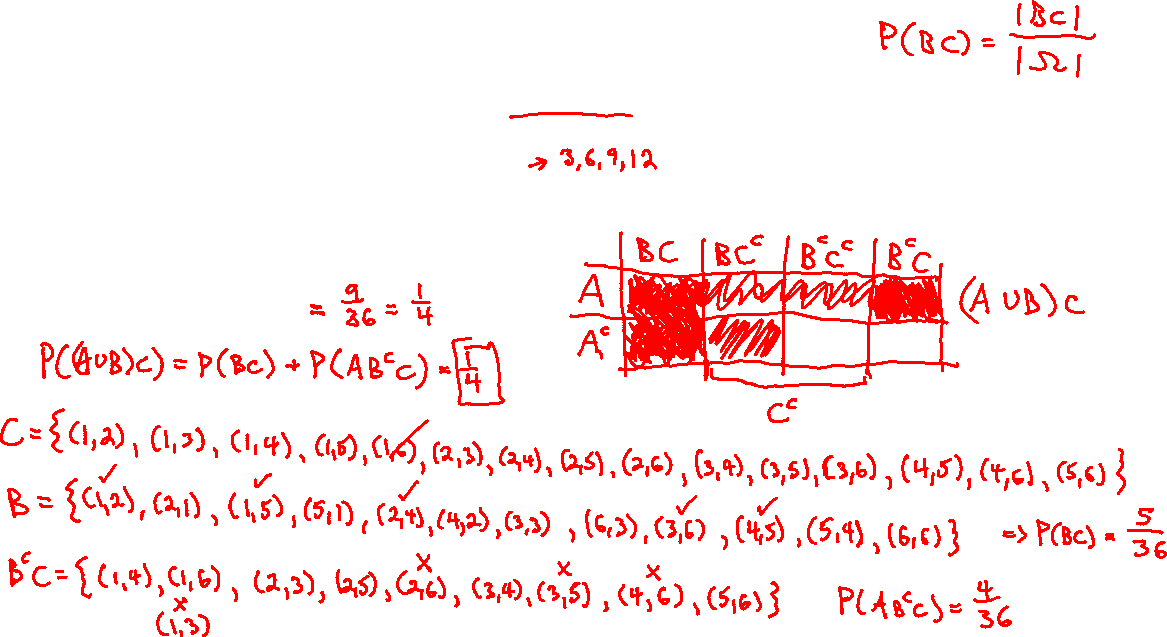 P(BC) = |BC| / |Ω|
→ 3,6,9,12
BC BC^c B^cC^c B^cC
A (A∪B)C
A^c
C^c
= 9/36 = 1/4
P((A∪B)C) = P(BC) + P(AB^cC) = 1/4
C = {(1,2), (1,3), (1,4), (1,5), (1,6), (2,3), (2,4), (2,5), (2,6), (3,4), (3,5), (3,6), (4,5), (4,6), (5,6)}
B = {(1,2), (2,1), (1,5), (5,1), (2,4), (4,2), (3,3), (6,3), (3,6), (4,5), (5,4), (6,6)} => P(BC) = 5/36
B^cC = {(1,4), (1,6), (2,3), (2,5), (2,6), (3,4), (3,5), (4,6), (5,6)} P(AB^cC) = 4/36
(1,3)